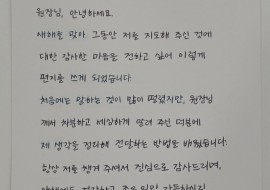 원장님, 안녕하세요.
새해를 맞아 그동안 저를 지도해 주신 것에
대한 감사한 마음을 전하고 싶어 이렇게
편지를 쓰게 되었습니다
처음에는 말하는 것이 많이 떨렸지만, 원장님
께서 차분하고 세심하게 알려 주신 덕분에
제 생각을 정리해 전달하는 방법을 배웠습니다.
항상 저를 챙겨 주셔서 진심으로 감사드리며,